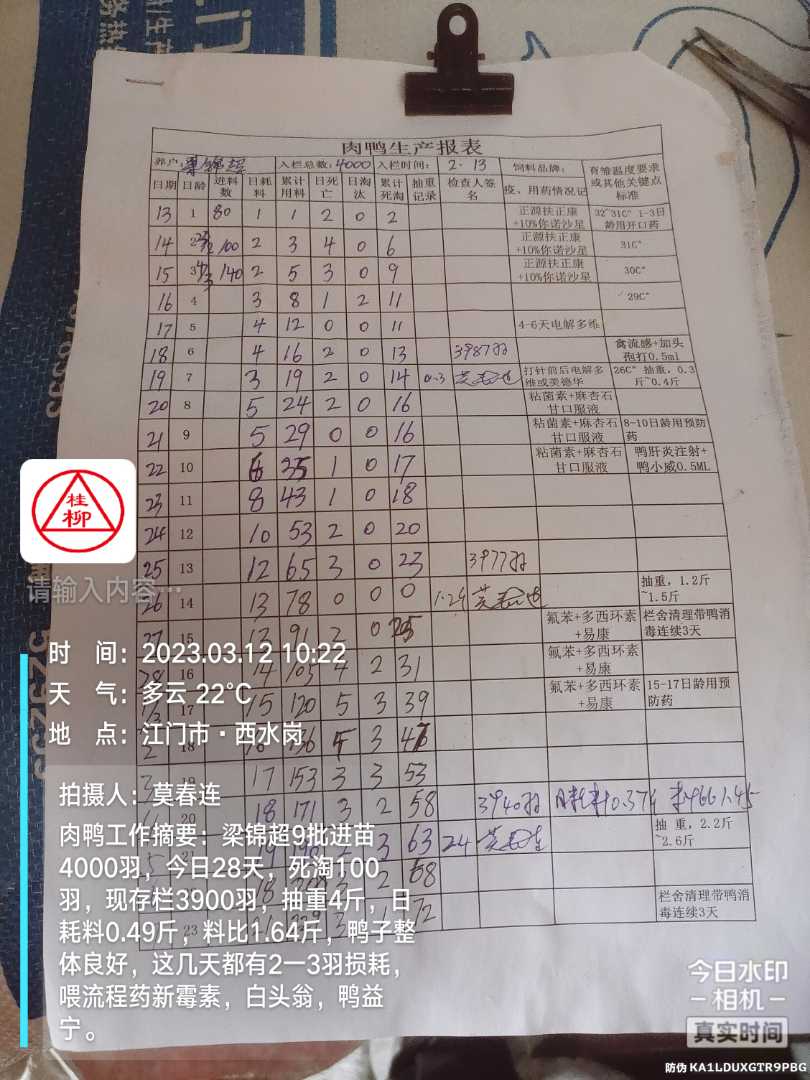 肉鸭生产报表
养户: 梁锦超 入栏总数: 4000 入栏时间: 2.13 饲料品牌: 育雏温度要求或其他关键点标准
日期 日龄 进料数 日耗料 累计用料 日死亡 日淘汰 累计死淘 抽重记录 检查人签名 疫、用药情况记
13 1 80 1 1 2 0 2 正源扶正康+10%你诺沙星 32~31C° 1-3日龄用开口药
14 2 100 2 3 4 0 6 正源扶正康+10%你诺沙星 31C°
15 3 140 2 5 3 0 9 正源扶正康+10%你诺沙星 30C°
16 4 3 8 1 2 11 29C°
17 5 4 12 0 0 11 4-6天电解多维
18 6 4 16 2 0 13 3987羽 禽流感+加头孢打0.5ml
19 7 3 19 2 0 14 0.3 莫春连 打针前后电解多维或美德华 26C° 抽重,0.3斤~0.4斤
20 8 5 24 2 0 16 粘菌素+麻杏石甘口服液
21 9 5 29 0 0 16 粘菌素+麻杏石甘口服液 8-10日龄用预防药
22 10 6 35 1 0 17 粘菌素+麻杏石甘口服液 鸭肝炎注射+鸭小威0.5ML
23 11 8 43 1 0 18
24 12 10 53 2 0 20
25 13 12 65 3 0 23 3977羽
26 14 13 78 0 0 0 1.29 莫春连 抽重,1.2斤~1.5斤
27 15 13 91 2 0 25 氟苯+多西环素+易康 栏舍清理带鸭消毒连续3天
28 16 14 105 4 2 31 氟苯+多西环素+易康
17 15 120 5 3 39 氟苯+多西环素+易康 15-17日龄用预防药
2 18 16 136 5 3 47
3 19 17 153 3 3 53
20 18 171 3 2 58 3940羽 日耗料0.374
5 21 19 3 63 24 莫春连 抽 重,2.2斤~2.6斤
18 3 2 68
23 21 72 栏舍清理带鸭消毒连续3天
桂柳
请输入内容…
时 间: 2023.03.12 10:22
天 气: 多云 22℃
地 点: 江门市·西水岗
拍摄人: 莫春连
肉鸭工作摘要: 梁锦超9批进苗
4000羽，今日28天，死淘100
羽，现存栏3900羽，抽重4斤，日
耗料0.49斤，料比1.64斤，鸭子整
体良好，这几天都有2一3羽损耗，
喂流程药新霉素，白头翁，鸭益
宁。
今日水印
相机
真实时间
防伪 KA1LDUXGTR9PBC